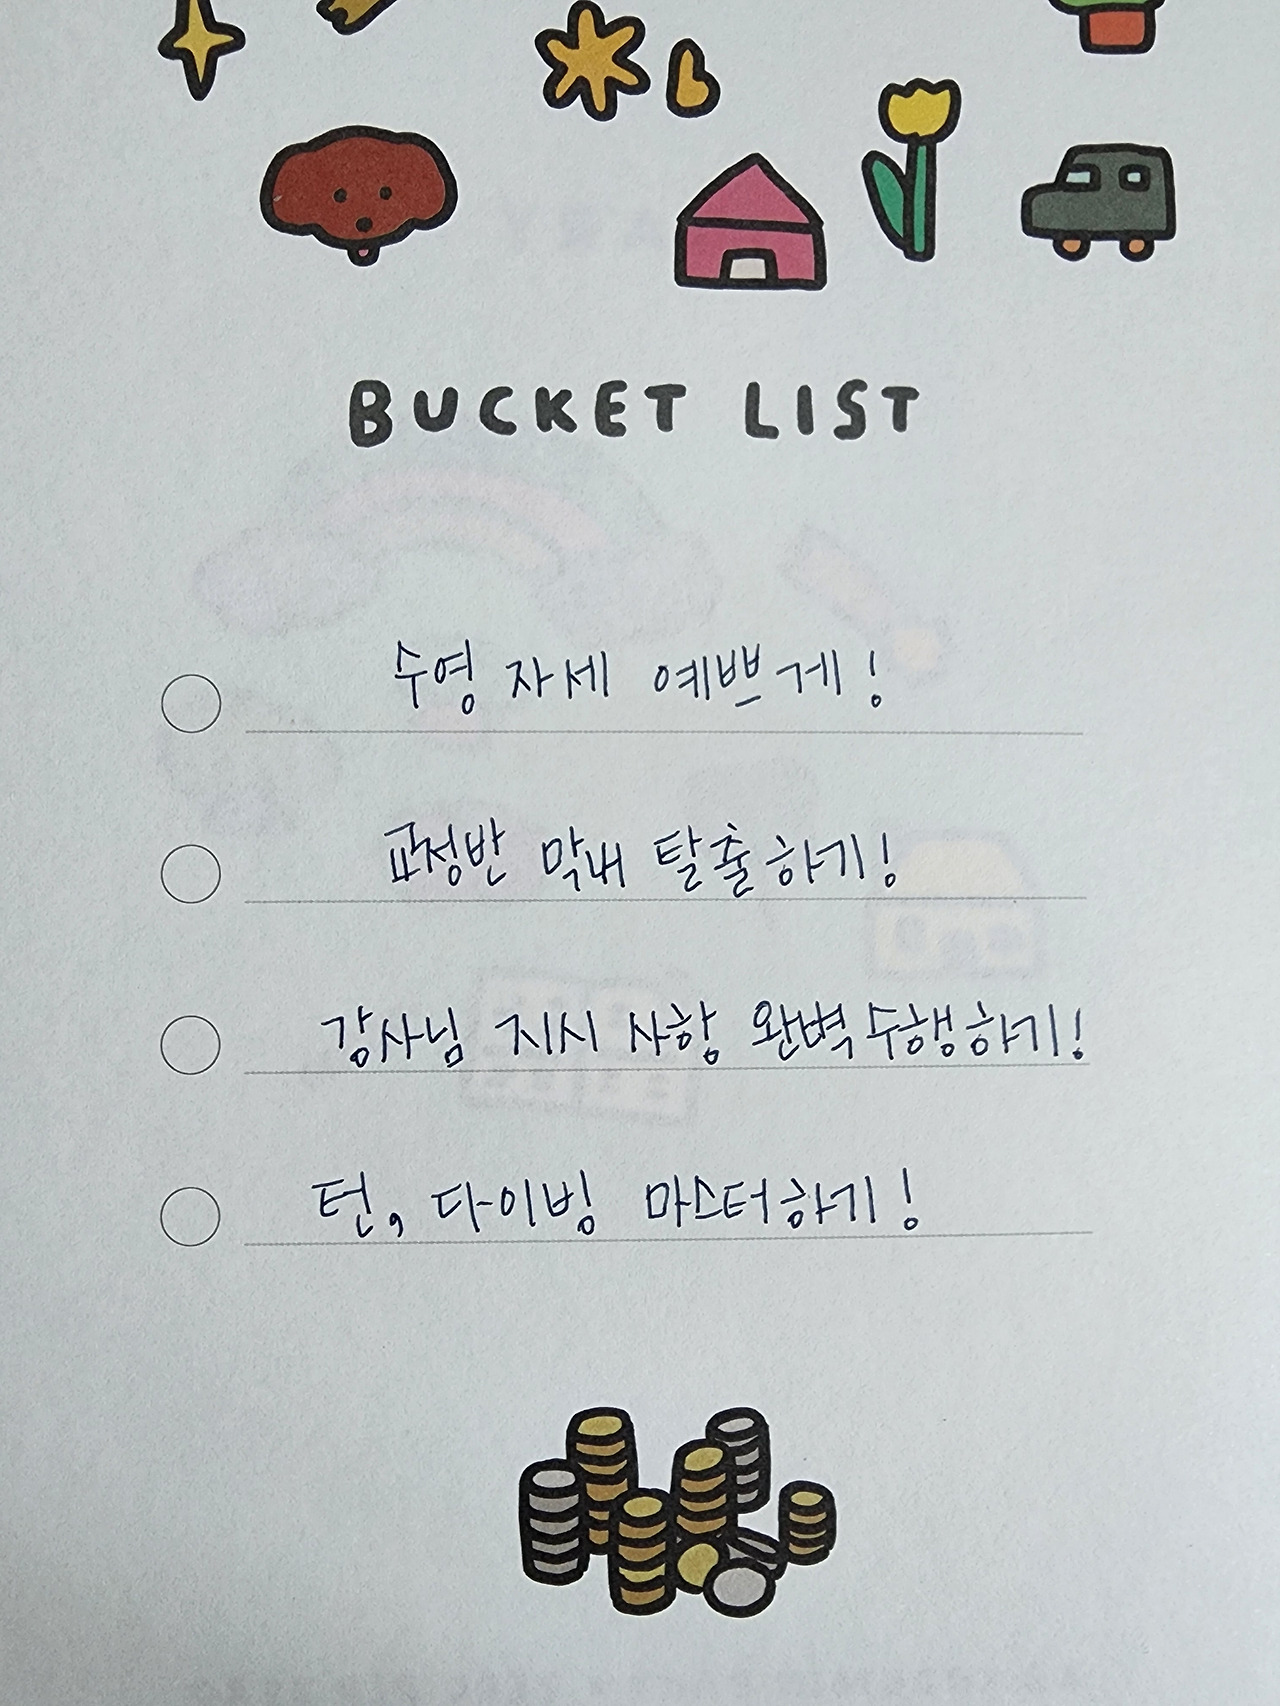 BUCKET LIST
수영 자세 예쁘게!
교정반 막내 탈출하기!
강사님 지시 사항 완벽 수행하기!
턴, 다이빙 마스터하기!